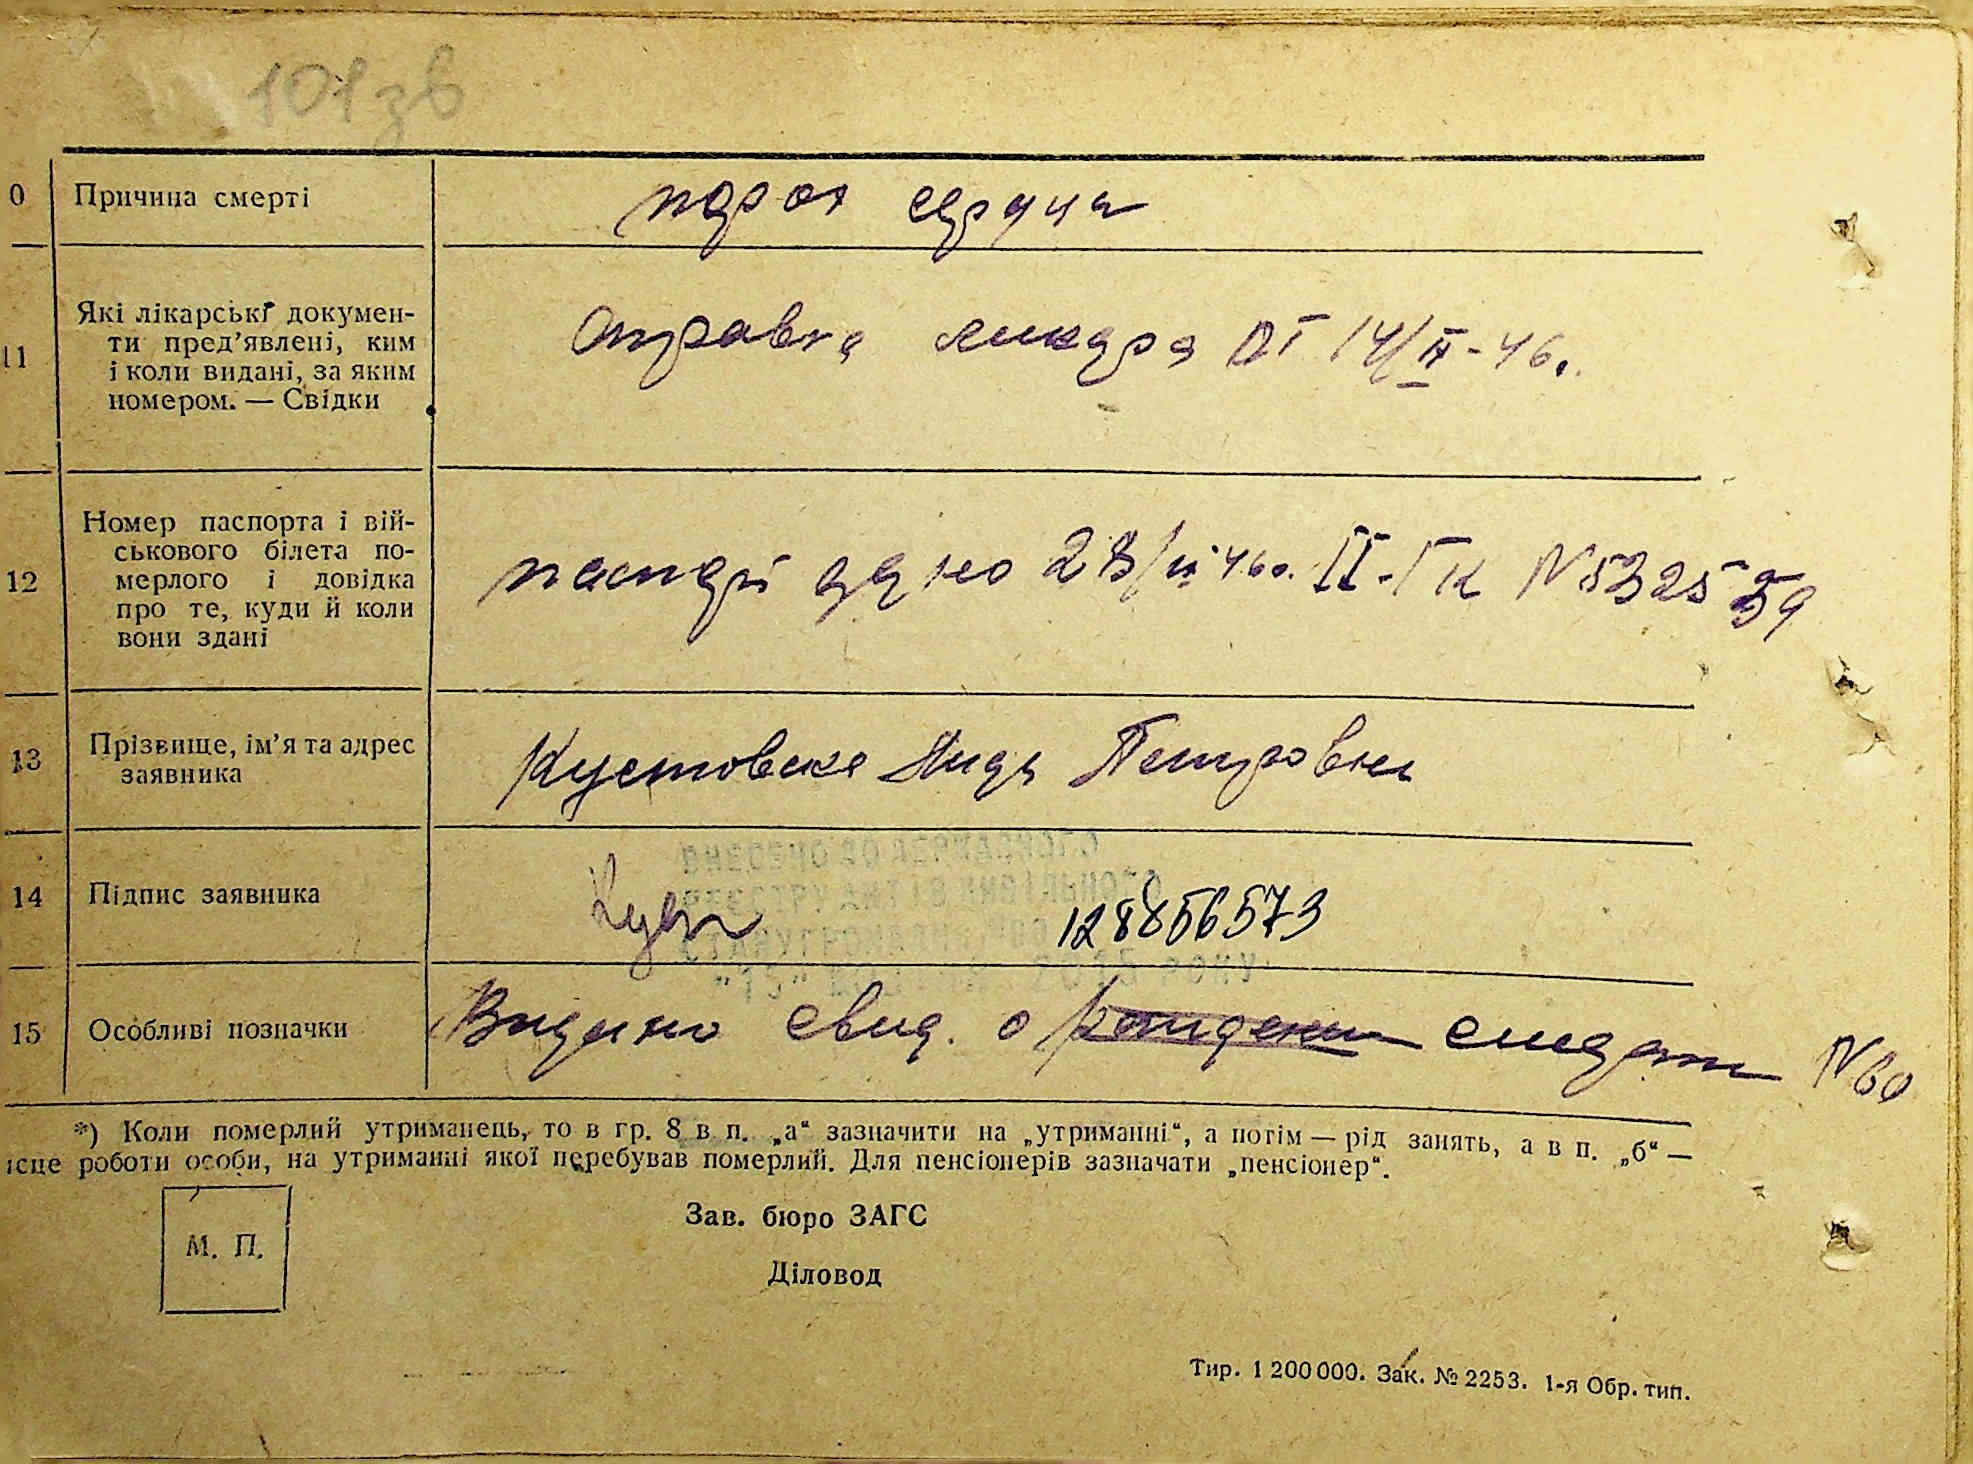 101зв
0 Причина смерті порок сердца
11 Які лікарські докумен-
ти пред’явлені, ким
і коли видані, за яким
номером. — Свідки
справка ликаря от 14/II-46.
12 Номер паспорта і вій-
ськового білета по-
мерлого і довідка
про те, куди й коли
вони здані
паспорт 28/II 46. II-ГК N 532559
13 Прізвище, ім’я та адрес
заявника
Кустовска Лида Петровна
14 Підпис заявника 128856573
ВНЕСЕНО ДО ДЕРЖАВНОГО
РЕЄСТРУ АКТІВ ЦИВІЛЬНОГО
СТАНУ ГРОМАДЯН
15 Особливі позначки Видано свид. о рождении смерти N60
*) Коли померлий утриманець, то в гр. 8 в п. „а“ зазначити на „утриманні“, а потім — рід занять, а в п. „б“ —
ісце роботи особи, на утриманні якої перебував померлий. Для пенсіонерів зазначати „пенсіонер“.
М. П.
Зав. бюро ЗАГС
Діловод
Тир. 1 200 000. Зак. № 2253. 1-я Обр. тип.